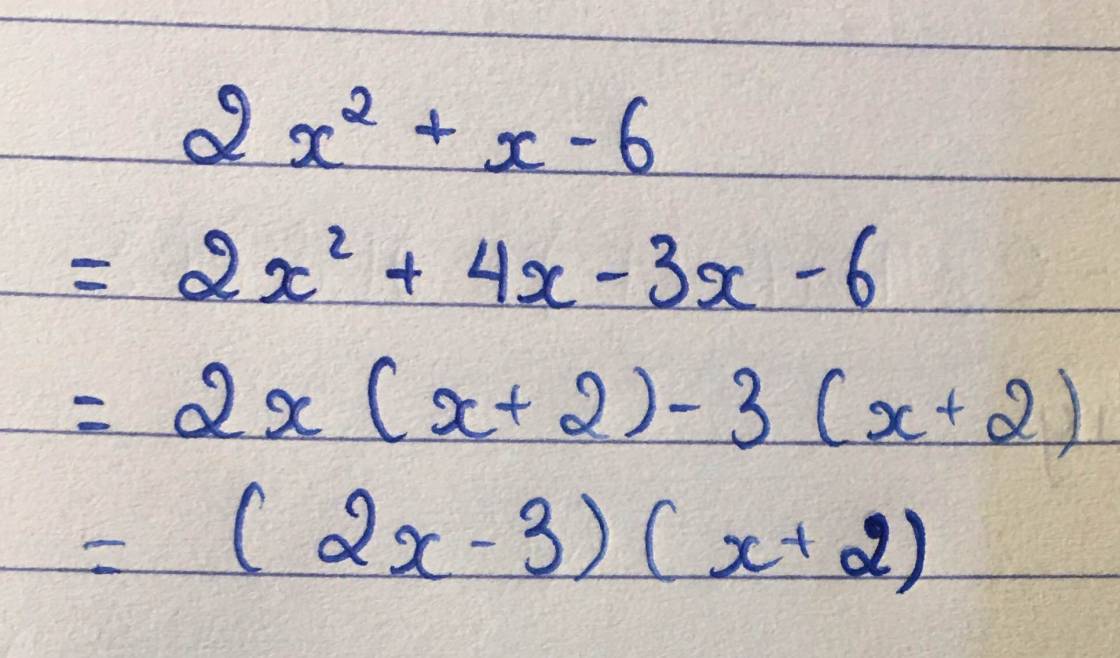 2x² + x - 6
= 2x² + 4x - 3x - 6
= 2x (x + 2) - 3 (x + 2)
= (2x - 3) (x + 2)